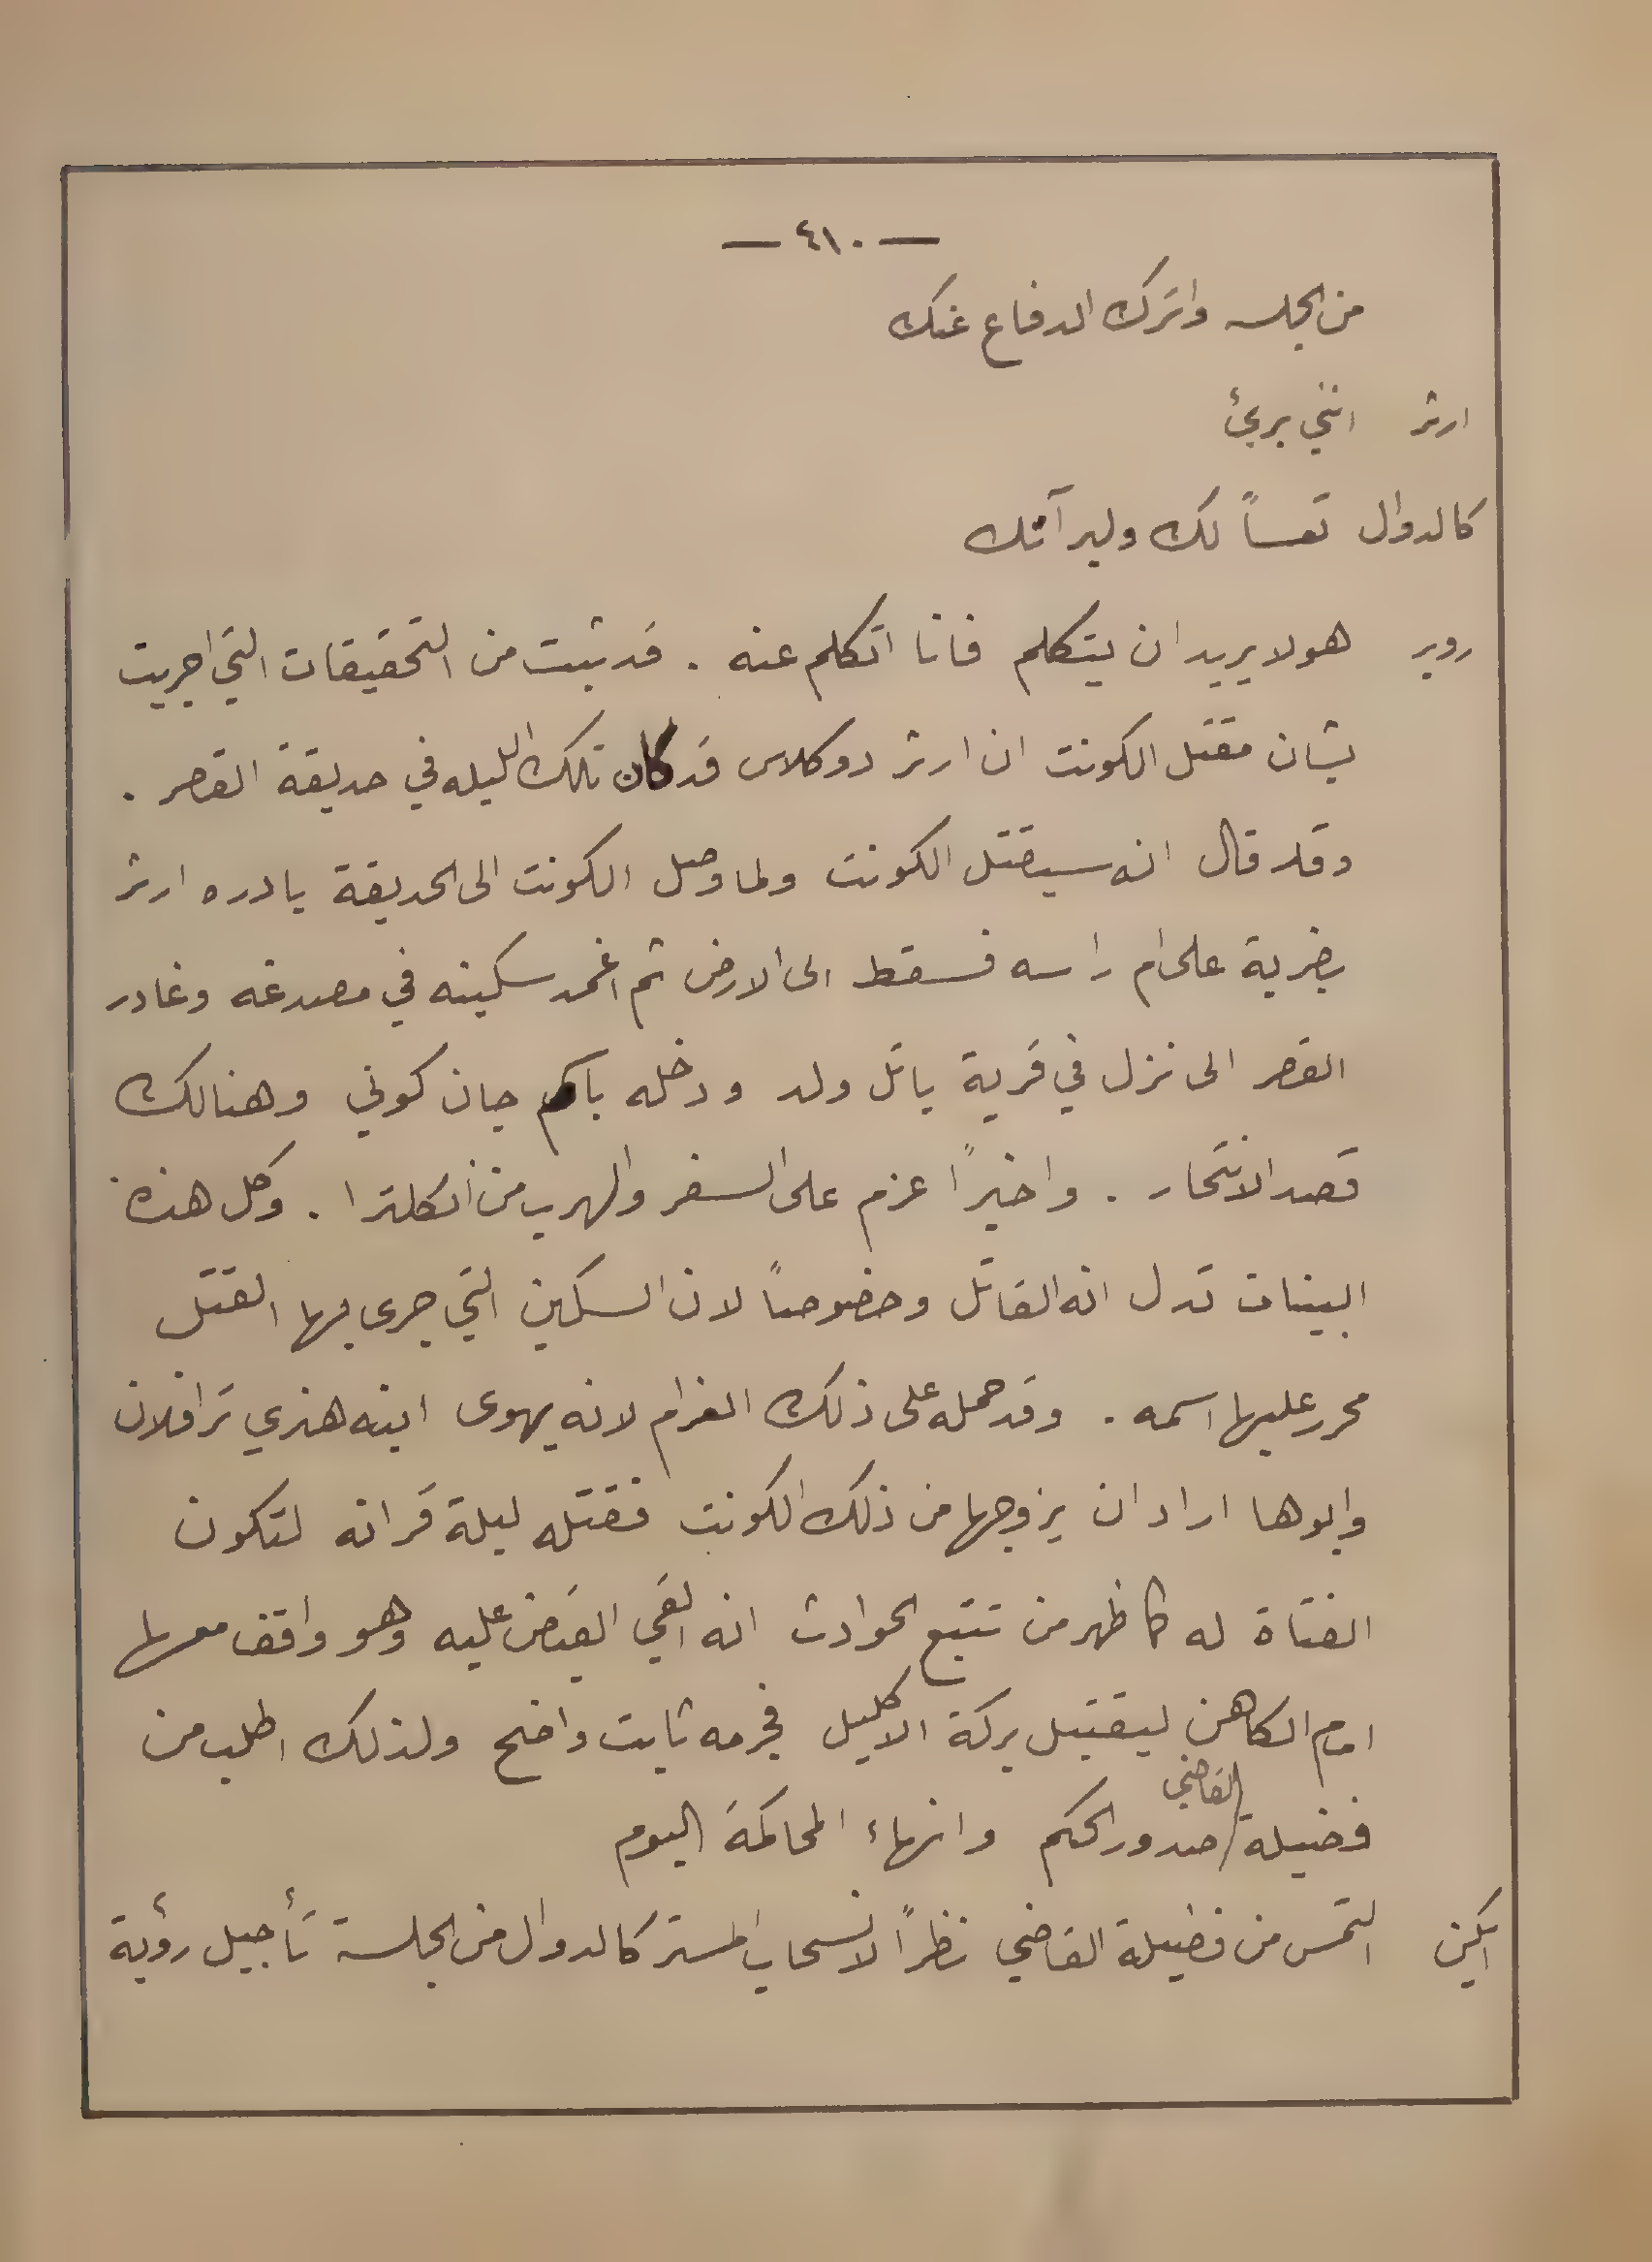 — ٤١٠ —
من الجلسه واترك الدفاع عنك
ارثر انني بريئ
كالدوال تعساً لك ولبرآتك
روبر هو لا يريد ان يتكلم فانا اتكلم عنه . قد ثبت من التحقيقات التي اجريت
بشان مقتل الكونت ان ارثر دوكلاس قد كان تلك الليله في حديقة القصر .
وقد قال انه سيقتل الكونت ولما وصل الكونت الى الحديقة بادره ارثر
بضربة على ام راسه فسقط الى الارض ثم اغمد سكينه في مصدغه وغادر
القصر الى نزل في قرية باتل ولد ودخله باسم جان كوني وهنالك
قصد الانتحار . واخيراً عزم على السفر والهرب من انكلترا . وكل هذه
البينات تدل انه القاتل وخصوصاً لان السكين التي جرى بها القتل
محرر عليها اسمه . وقد حمله على ذلك الغرام لانه يهوى ابنه هنري ترافلان
وابوها اراد ان يزوجها من ذلك الكونت فقتله ليلة قرانه لتكون
الفتاة له كما ظهر من تتبع الحوادث انه القي القبض عليه وهو واقف معها
امام الكاهن ليقتبل بركة الاكليل فجرمه ثابت واضح ولذلك اطلب من
فضيلة القاضي صدور الحكم وانهاء المحاكمة اليوم
ايكن التمس من فضيلة القاضي نظراً لانسحاب المستر كالدوال من الجلسة تأجيل رؤية